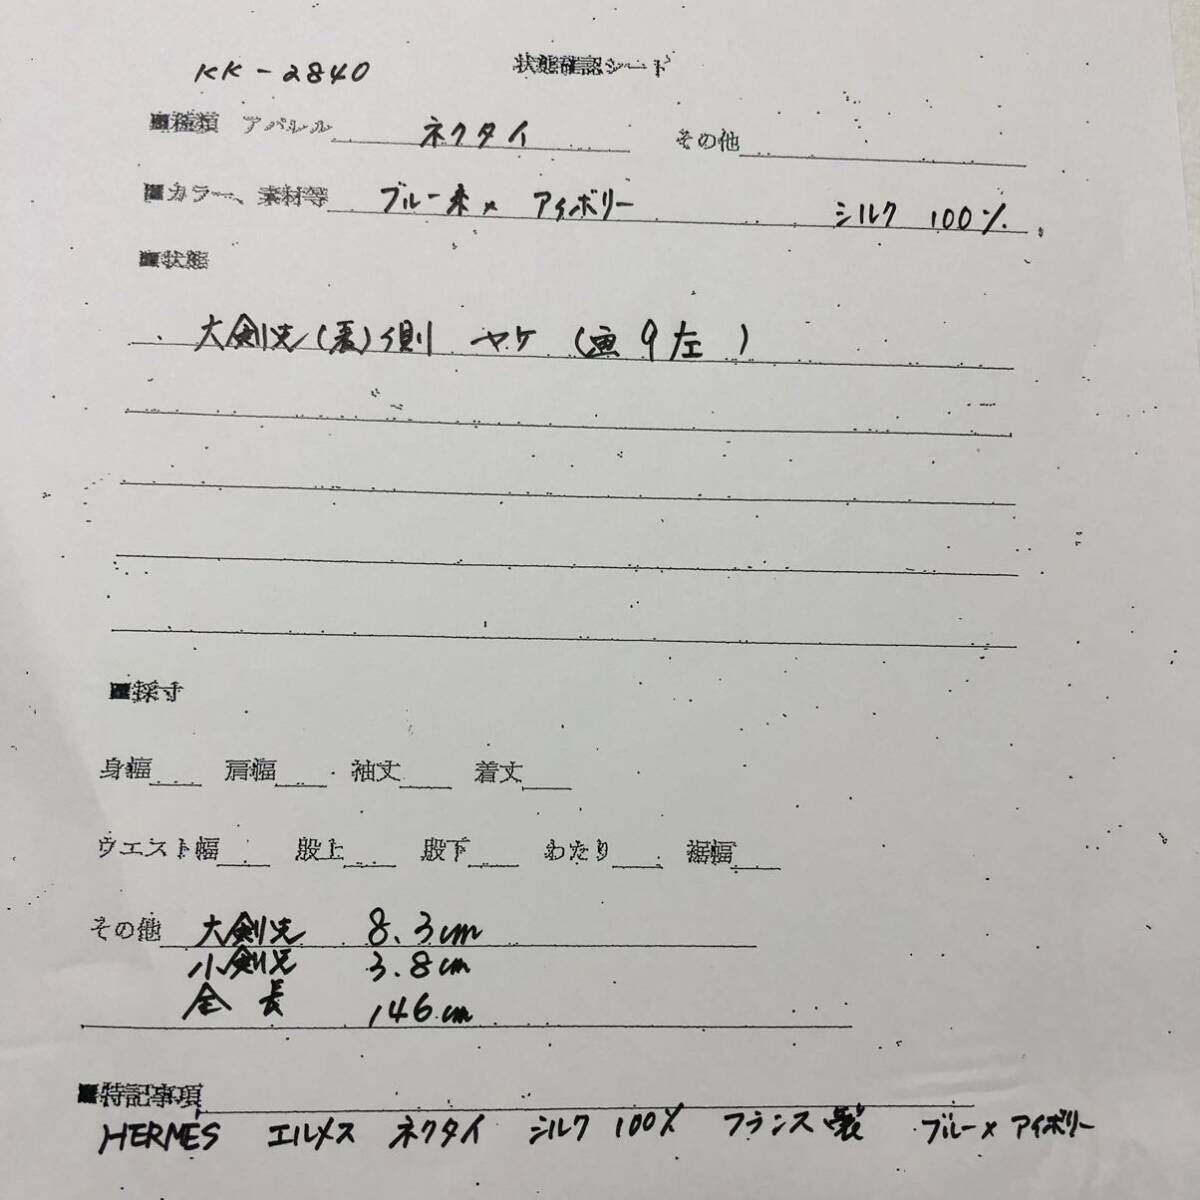 KK-2840 状態確認シート
■種類 アパレル ネクタイ その他
■カラー、素材等 ブルー系× アイボリー シルク 100%
■状態
大剣先(裏)側 ヤケ (画9左)
■採寸
身幅 肩幅 袖丈 着丈
ウエスト幅 股上 股下 わたり 裾幅
その他 大剣先 8.3cm
小剣先 3.8cm
全長 146cm
■特記事項
HERMES エルメス ネクタイ シルク 100% フランス製 ブルー× アイボリー